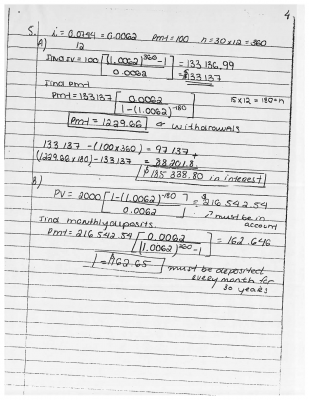 4
5. i = 0.0744 = 0.0062 pmt = 100 n = 30 x 12 = 360
12
A)
Find FV = 100 [(1.0062)^360 - 1] = 133 136.99
0.0062 = $133 137
Find pmt
Pmt = 133137 [0.0062
1-(1.0062)^-180] 15 x 12 = 180 = n
Pmt = 1229.66 withdrawals
133 137 - (100 x 360) = 97 137 +
(1229.66 x 180) - 133 137 = 88201.8
$185 338.80 in interest
B)
PV = 2000 [1-(1.0062)^-180] = $216 542.54
0.0062 must be in
account
Find monthly deposits
Pmt = 216 542.54 [0.0062
(1.0062)^360 - 1] = 162.646
= $162.65 must be deposited
every month for
30 years